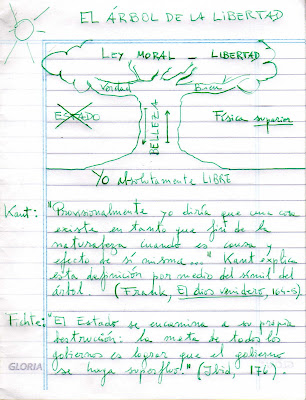 EL ÁRBOL DE LA LIBERTAD
LEY MORAL - LIBERTAD
Verdad Bien
ESTADO
BELLEZA
Física superior
Yo absolutamente LIBRE
Kant: "Provisionalmente yo diría que una cosa
existe en tanto que fin de la
naturaleza cuando es causa y
efecto de sí misma..." Kant explica
esta definición por medio del símil del
árbol. (Frank, El dios venidero, 164-5).
Fichte: "El Estado se encamina a su propia
destrucción: la meta de todos los
gobiernos es lograr que el gobierno
se haga superfluo". (Ibid, 176).
GLORIA